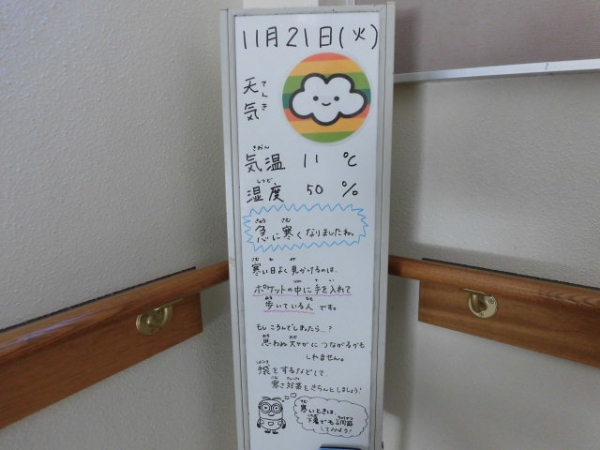 11月21日(火)
天気
てんき
きおん
気温 11 ℃
しつど
湿度 50 %
急に寒くなりましたね。
寒い日よく見かけるのは、
ポケットの中に手を入れて
歩いている人です。
もしころんでしまったら…?
思わぬケガにつながるかも
しれません。
手袋をするなどして、
寒さ対策をきちんとしましょう!
寒いときは、
下着でも調節